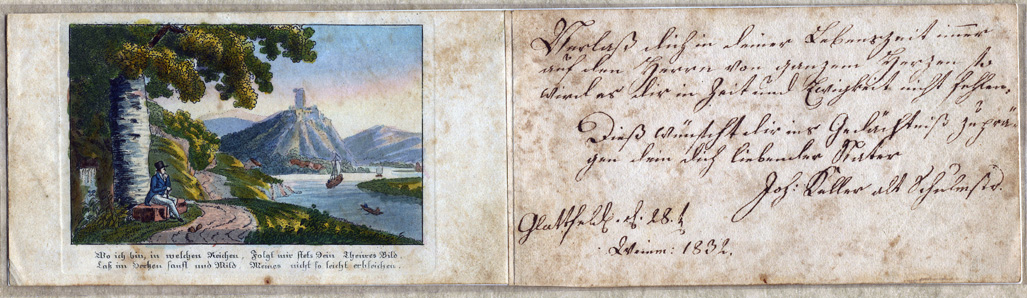 Wo ich bin, in welchen Reichen, Folgt mir stets Dein Theures Bild.
Laß im Herzen sanft und Mild Meines nicht so leicht erbleichen.
Verlaß dich in deiner Lebenszeit immer
auf den Herrn von ganzem Herzen so
wird es dir in Zeit und Ewigkeit nicht fehlen,
Dieß wünscht dir ins Gedächtniß zuprä-
gen dein dich liebender Vater
Joh: Keller alt Schulmstr.
Glattfeld. d. 28.t
Weinm: 1832.